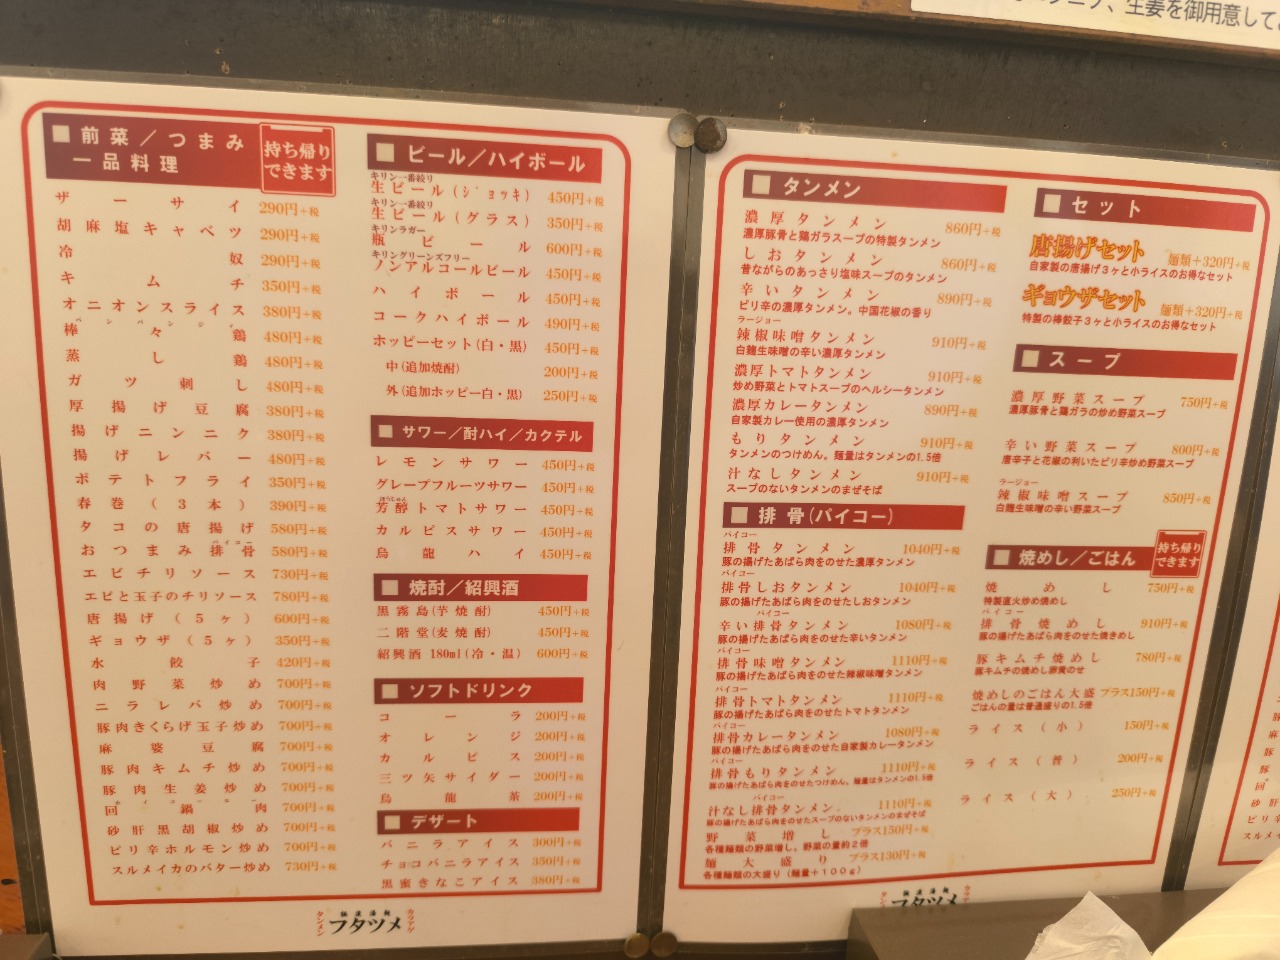 生姜を御用意して
■前菜／つまみ
一品料理
持ち帰り
できます
ザーサイ 290円+税
胡麻塩キャベツ 290円+税
冷奴 290円+税
キムチ 350円+税
オニオンスライス 380円+税
バンバンジー
棒々鶏 480円+税
蒸し鶏 480円+税
ガツ刺し 480円+税
厚揚げ豆腐 380円+税
揚げニンニク 380円+税
揚げレバー 480円+税
ポテトフライ 350円+税
春巻(3本) 390円+税
タコの唐揚げ 580円+税
パイコー
おつまみ排骨 580円+税
エビチリソース 730円+税
エビと玉子のチリソース 780円+税
唐揚げ(5ヶ) 600円+税
ギョウザ(5ヶ) 350円+税
水餃子 420円+税
肉野菜炒め 700円+税
ニラレバ炒め 700円+税
豚肉きくらげ玉子炒め 700円+税
麻婆豆腐 700円+税
豚肉キムチ炒め 700円+税
豚肉生姜炒め 700円+税
回鍋肉 700円+税
砂肝黒胡椒炒め 700円+税
ピリ辛ホルモン炒め 700円+税
スルメイカのバター炒め 730円+税
■ビール／ハイボール
キリン一番絞り
生ビール(ジョッキ) 450円+税
キリン一番絞り
生ビール(グラス) 350円+税
キリンラガー
瓶ビール 600円+税
キリングリーンズフリー
ノンアルコールビール 450円+税
ハイボール 450円+税
コークハイボール 490円+税
ホッピーセット(白・黒) 450円+税
中(追加焼酎) 200円+税
外(追加ホッピー白・黒) 250円+税
■サワー／酎ハイ／カクテル
レモンサワー 450円+税
グレープフルーツサワー 450円+税
ほうじゅん
芳醇トマトサワー 450円+税
カルピスサワー 450円+税
烏龍ハイ 450円+税
■焼酎／紹興酒
黒霧島(芋焼酎) 450円+税
二階堂(麦焼酎) 450円+税
紹興酒 180ml(冷・温) 600円+税
■ソフトドリンク
コーラ 200円+税
オレンジ 200円+税
カルピス 200円+税
三ツ矢サイダー 200円+税
烏龍茶 200円+税
■デザート
バニラアイス 300円+税
チョコバニラアイス 350円+税
黒蜜きなこアイス 380円+税
タンメン
フタツメ
カラアゲ
■タンメン
濃厚タンメン 860円+税
濃厚豚骨と鶏ガラスープの特製タンメン
しおタンメン 860円+税
昔ながらのあっさり塩味スープのタンメン
辛いタンメン 890円+税
ピリ辛の濃厚タンメン。中国花椒の香り
ラージョー
辣椒味噌タンメン 910円+税
白麹生味噌の辛い濃厚タンメン
濃厚トマトタンメン 910円+税
炒め野菜とトマトスープのヘルシータンメン
濃厚カレータンメン 890円+税
自家製カレー使用の濃厚タンメン
もりタンメン 910円+税
タンメンのつけめん。麺量はタンメンの1.5倍
汁なしタンメン 910円+税
スープのないタンメンのまぜそば
■排骨(パイコー)
パイコー
排骨タンメン 1040円+税
豚の揚げたあばら肉をのせた濃厚タンメン
パイコー
排骨しおタンメン 1040円+税
豚の揚げたあばら肉をのせたしおタンメン
パイコー
辛い排骨タンメン 1080円+税
豚の揚げたあばら肉をのせた辛いタンメン
パイコー
排骨味噌タンメン 1110円+税
豚の揚げたあばら肉をのせた辣椒味噌タンメン
パイコー
排骨トマトタンメン 1110円+税
豚の揚げたあばら肉をのせたトマトタンメン
パイコー
排骨カレータンメン 1080円+税
豚の揚げたあばら肉をのせた自家製カレータンメン
パイコー
排骨もりタンメン 1110円+税
豚の揚げたあばら肉をのせたつけめん。麺量はタンメンの1.5倍
パイコー
汁なし排骨タンメン 1110円+税
豚の揚げたあばら肉をのせたスープのないタンメンのまぜそば
野菜増し プラス150円+税
各種麺類の野菜増し。野菜の量約2倍
麺大盛り プラス130円+税
各種麺類の大盛り(麺量+100g)
■セット
唐揚げセット 麺類+320円+税
自家製の唐揚げ3ヶと小ライスのお得なセット
ギョウザセット 麺類+320円+税
特製の棒餃子3ヶと小ライスのお得なセット
■スープ
濃厚野菜スープ 750円+税
濃厚豚骨と鶏ガラの炒め野菜スープ
辛い野菜スープ 800円+税
唐辛子と花椒の利いたピリ辛炒め野菜スープ
ラージョー
辣椒味噌スープ 850円+税
白麹生味噌の辛い野菜スープ
■焼めし／ごはん
持ち帰り
できます
焼めし 750円+税
特製直火炒め焼めし
パイコー
排骨焼めし 910円+税
豚の揚げたあばら肉をのせた焼きめし
豚キムチ焼めし 780円+税
豚キムチの焼めし卵黄のせ
焼めしのごはん大盛 プラス150円+税
ごはんの量は普通盛りの1.5倍
ライス(小) 150円+税
ライス(普) 200円+税
ライス(大) 250円+税
フタツメ